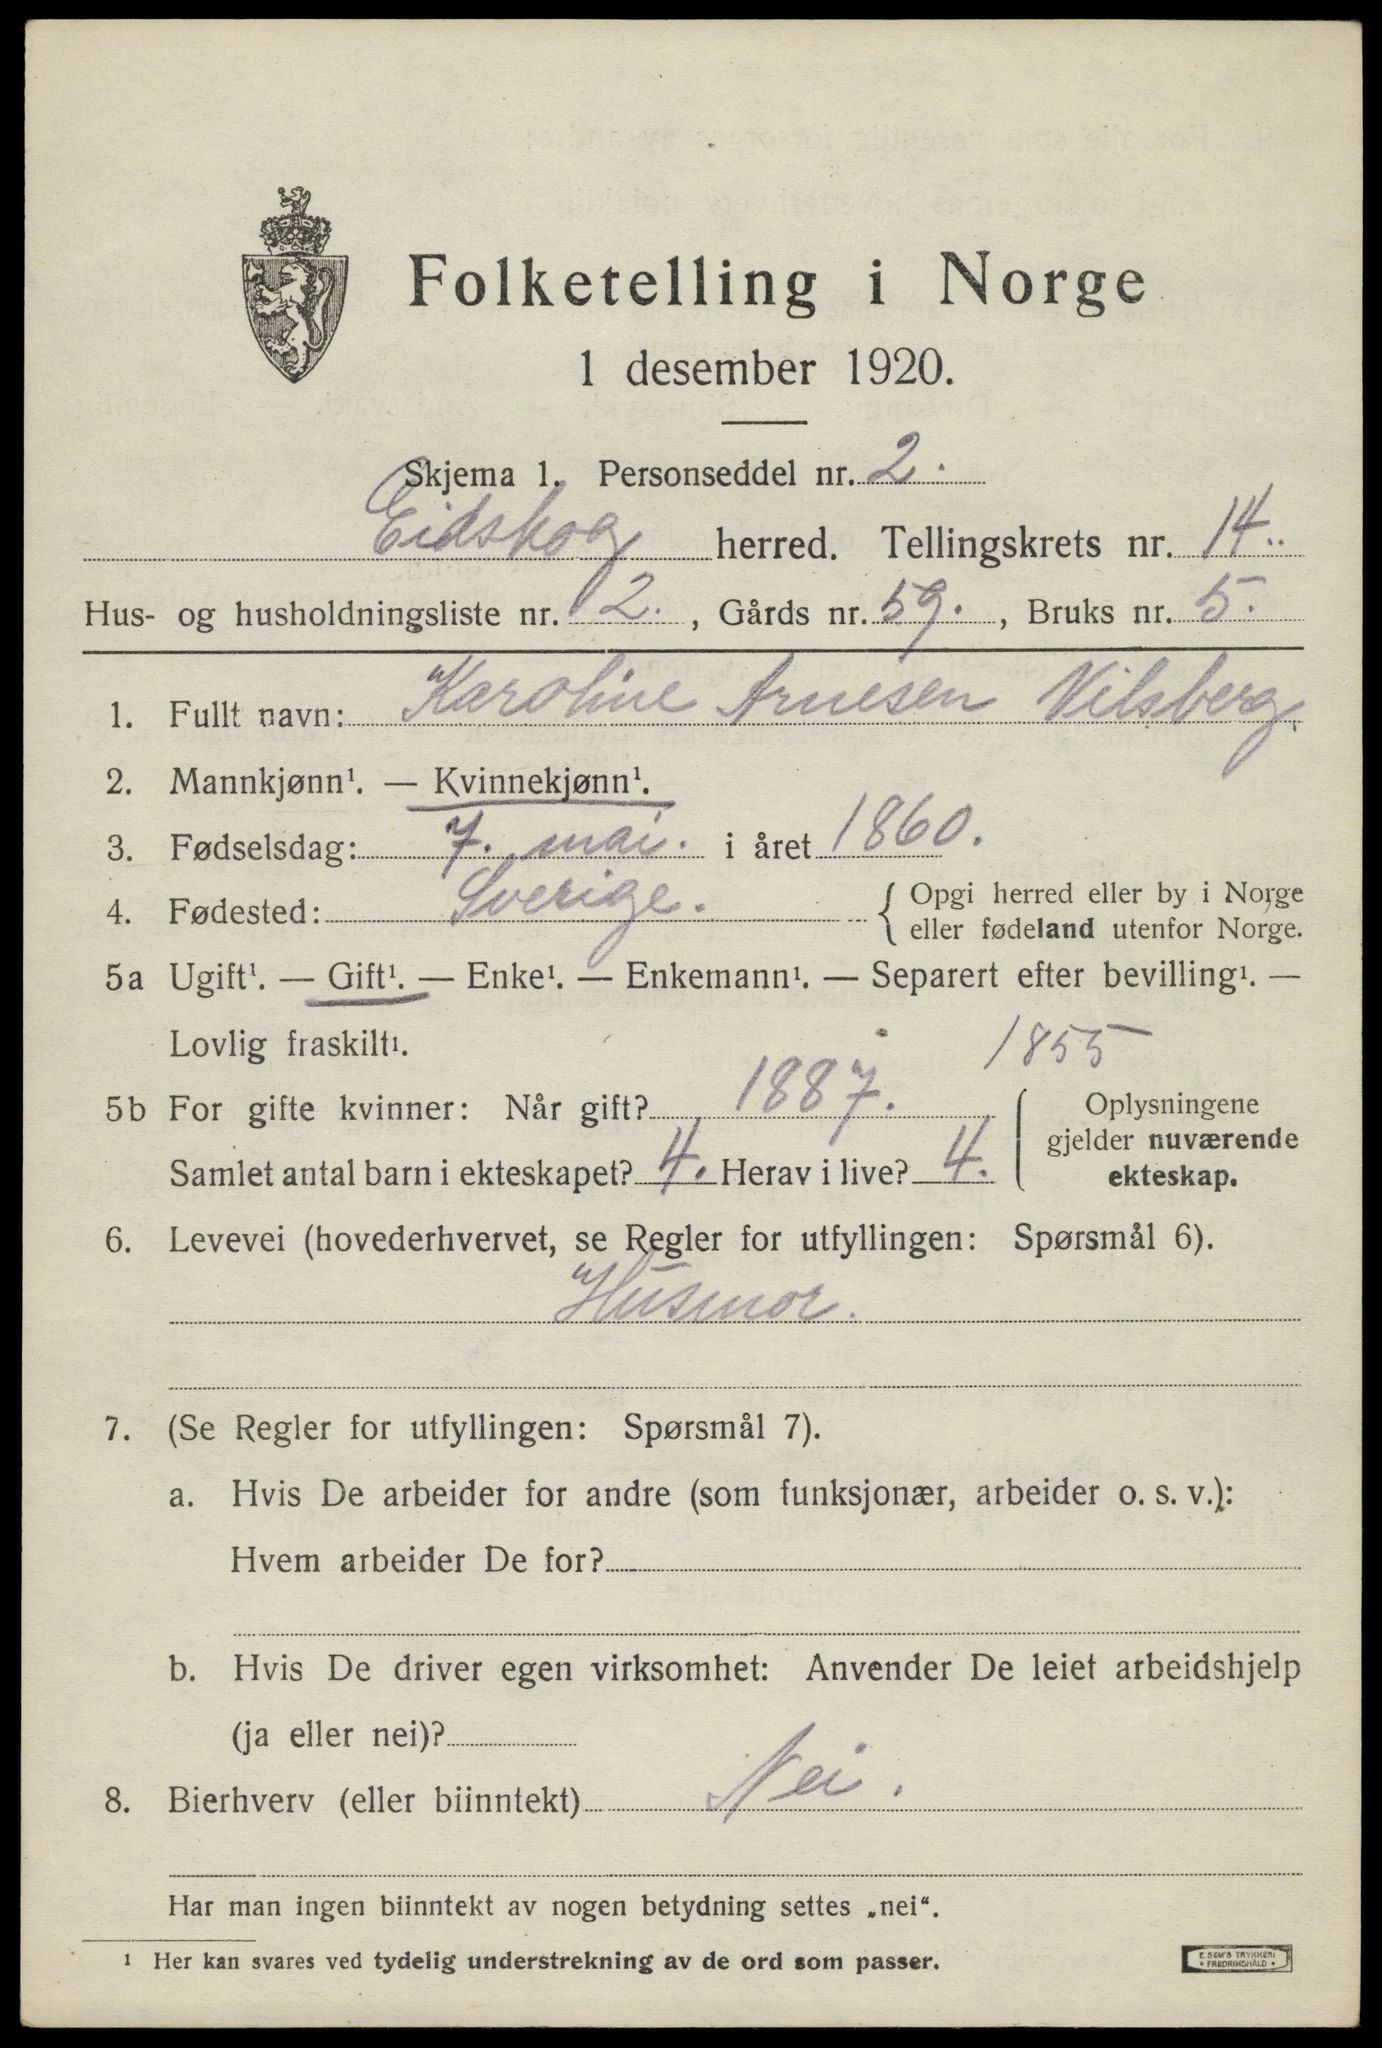 Folketelling i Norge
1 desember 1920.
Skjema 1. Personseddel nr. 2.
Eidskog herred. Tellingskrets nr. 14.
Hus- og husholdningsliste nr. 2., Gårds nr. 59., Bruks nr. 5.
1. Fullt navn: Karoline Arnesen Vilsberg.
2. Mannkjønn¹. — Kvinnekjønn¹.
3. Fødselsdag: 7. mai. i året 1860.
4. Fødested: Sverige. { Opgi herred eller by i Norge
eller fødeland utenfor Norge.
5a Ugift¹. — Gift¹. — Enke¹. — Enkemann¹. — Separert efter bevilling¹. —
Lovlig fraskilt¹.
1855
5b For gifte kvinner: Når gift? 1887. { Oplysningene
gjelder nuværende
Samlet antal barn i ekteskapet? 4. Herav i live? 4. ekteskap.
6. Levevei (hovederhvervet, se Regler for utfyllingen: Spørsmål 6).
Husmor.
7. (Se Regler for utfyllingen: Spørsmål 7).
a. Hvis De arbeider for andre (som funksjonær, arbeider o. s. v.):
Hvem arbeider De for?
b. Hvis De driver egen virksomhet: Anvender De leiet arbeidshjelp
(ja eller nei)?
8. Bierhverv (eller biinntekt) Nei.
Har man ingen biinntekt av nogen betydning settes „nei“.
¹ Her kan svares ved tydelig understrekning av de ord som passer.
E. SEM'S TRYKKERI
• FREDRIKSHALD •